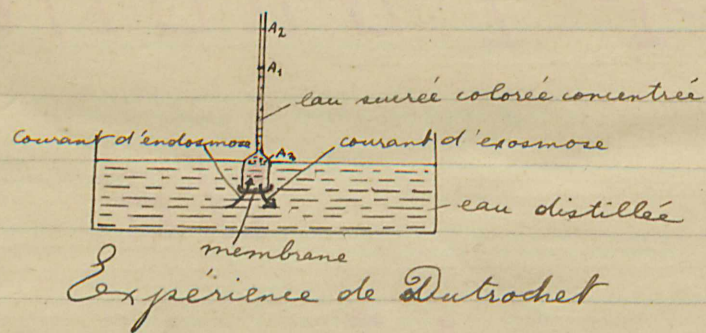 A2
A1
eau sucrée colorée concentrée
courant d'endosmose
A3
courant d'exosmose
eau distillée
membrane
Expérience de Dutrochet